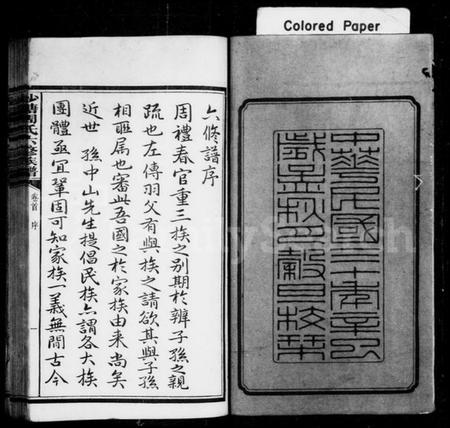 Colored Paper
中華民國三十年辛巳
歲孟秋之穀旦校栞
六修譜序
周禮春官重三族之別期於辨子孫之親
疏也左傳羽父有與族之請欲其與子孫
相聯屬也審此吾國之於家族由来尚矣
近世 孫中山先生提倡民族亦謂各大族
團體亟宜鞏固可知家族一義無間古今
周氏六修族譜
卷首 序
一
FamilySearch